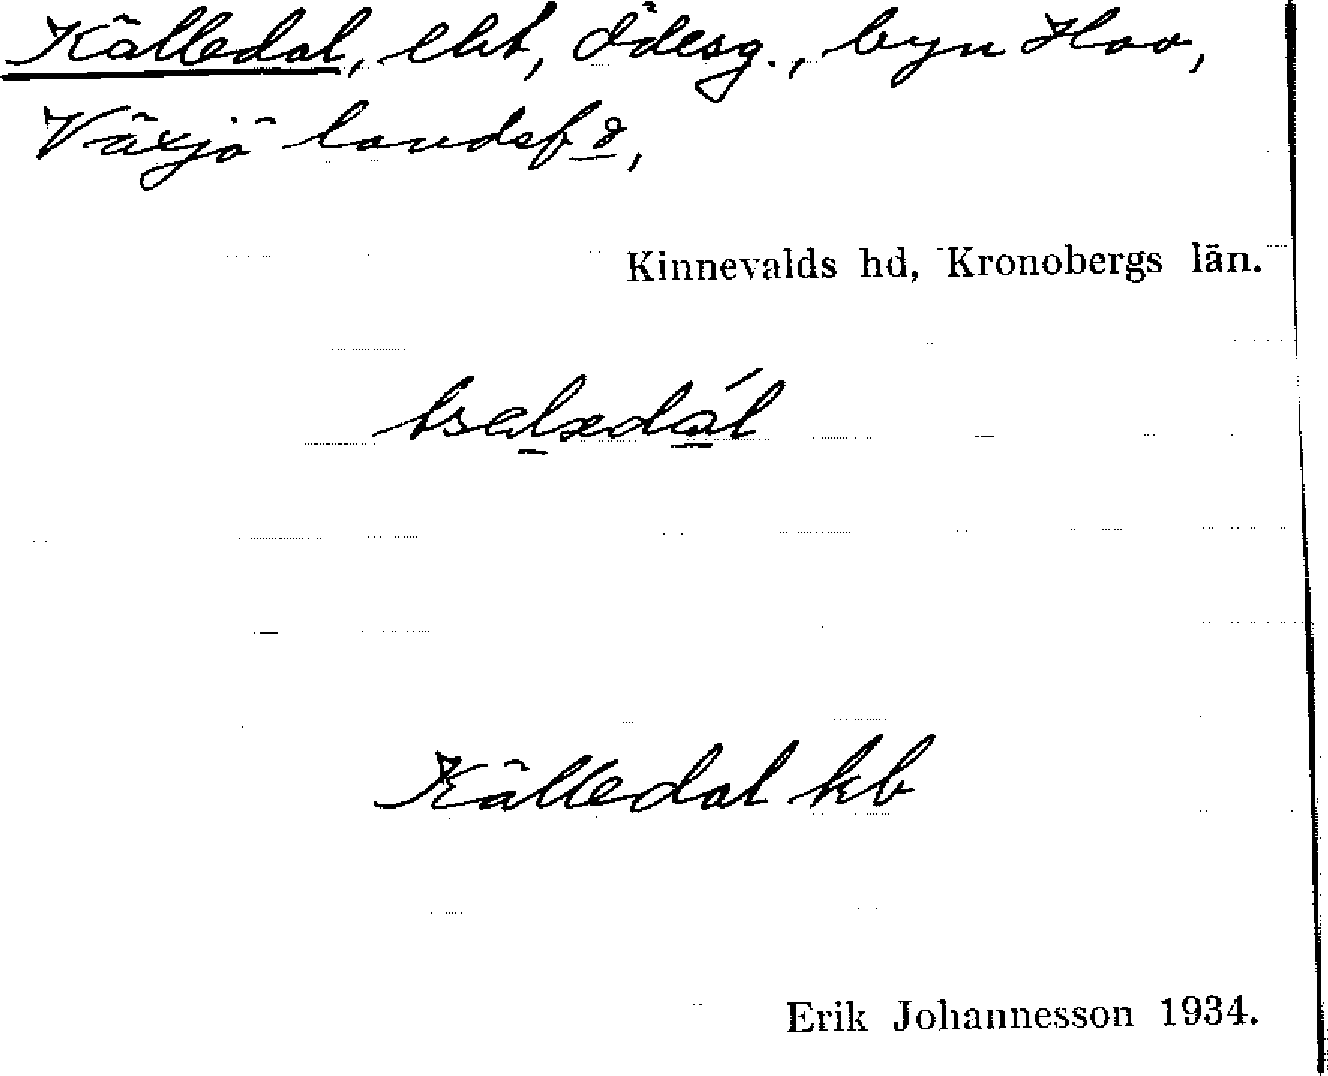 Källedal, lht, ödesg., byn Hov,
Växjö landsfs,
Kinnevalds hd, Kronobergs län.
Källedal kb
Erik Johannesson 1934.